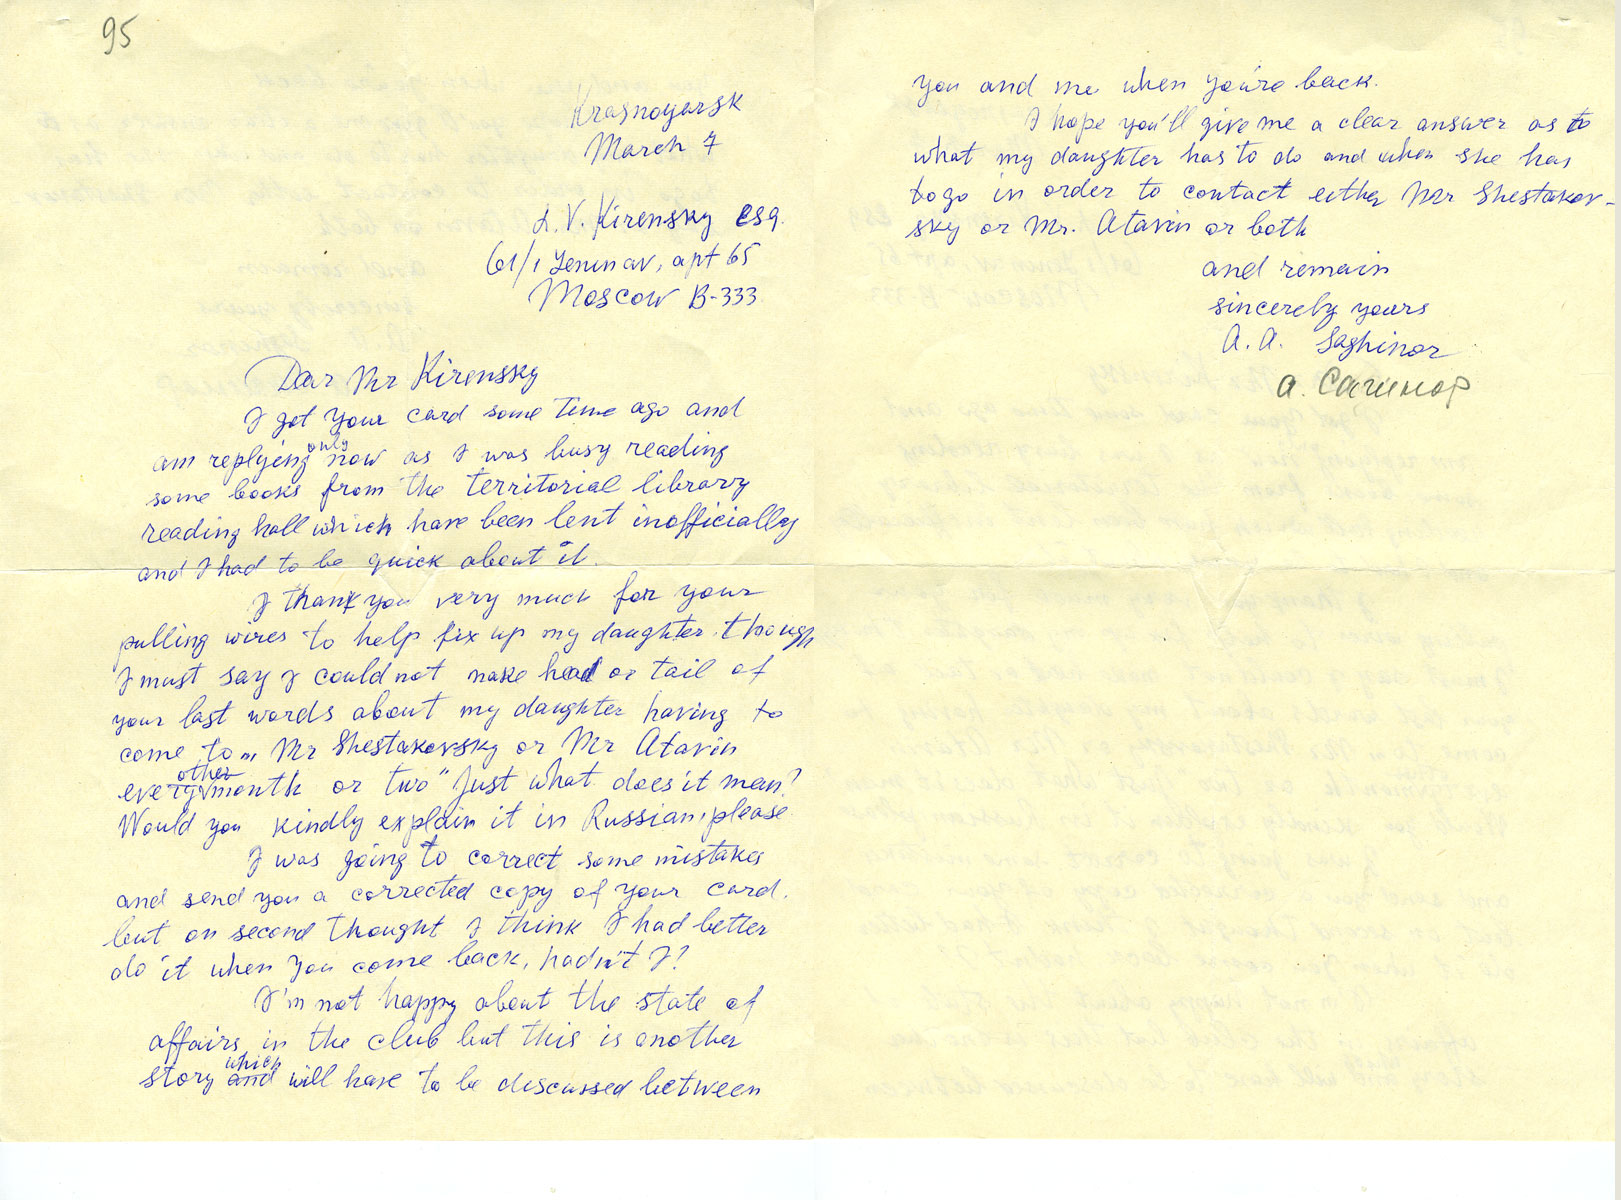 95
Krasnoyarsk
March 7
L. V. Kirensky esq.
61/1 Lenin av, apt 65
Moscow B-333
Dear Mr Kirensky
I got your card some time ago and
only
am replying now as I was busy reading
some books from the territorial library
reading hall which have been lent inofficially
and I had to be quick about it.
I thank you very much for your
pulling wires to help fix up my daughter. though
I must say I could not make head or tail of
your last words about my daughter having to
come to „ Mr Shestakovsky or Mr Atavin
other
every month or two" Just what does it mean?
Would you kindly explain it in Russian, please
I was going to correct some mistakes
and send you a corrected copy of your card.
but on second thought I think I had better
do it when you come back, hadn't I?
I'm not happy about the state of
affairs in the club but this is another
which
story and will have to be discussed between
you and me when you're back.
I hope you'll give me a clear answer as to
what my daughter has to do and when she has
to go in order to contact either Mr Shestakov-
sky or Mr. Atavin or both
and remain
sincerely yours
A. A. Saghinor
А. Сагинор